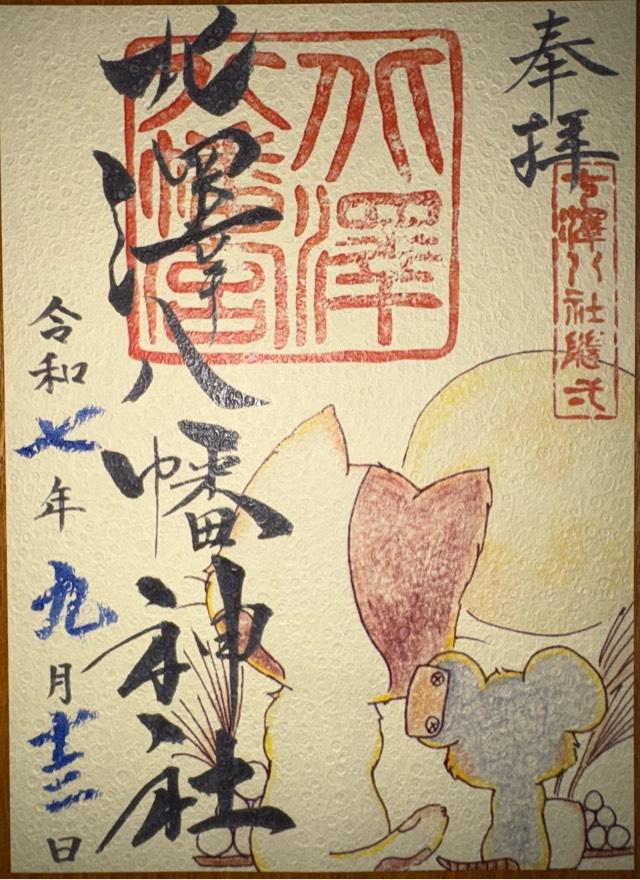 奉拝
七澤八社随弌
北澤
八幡宮
北澤八幡神社
令和七年九月十三日